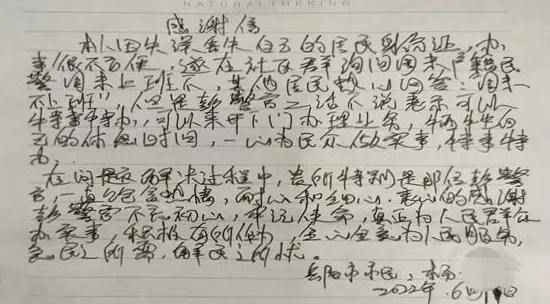 NATURALTHEKING
感谢信
本人因失误丢失自己的居民身份证，办
事很不方便，遂在社区群询问周末户籍民
警周末上班不，其他居民热心回答：周末
不上班，但是彭警官二话不说表示可以
特事特办，可以来所上门办理业务，牺牲自
己的休息时间，一心为民众做实事，特事特
办。
在问题解决过程中，贵所特别是那位彭警
官，一直饱含热情，耐心和细心。衷心的感谢
彭警官不忘初心，牢记使命，真正为人民群众
办实事，积极有所作为，全心全意为人民服务，
急民之所需，解民之所忧。
岳阳市市民：杨
2022年.6月